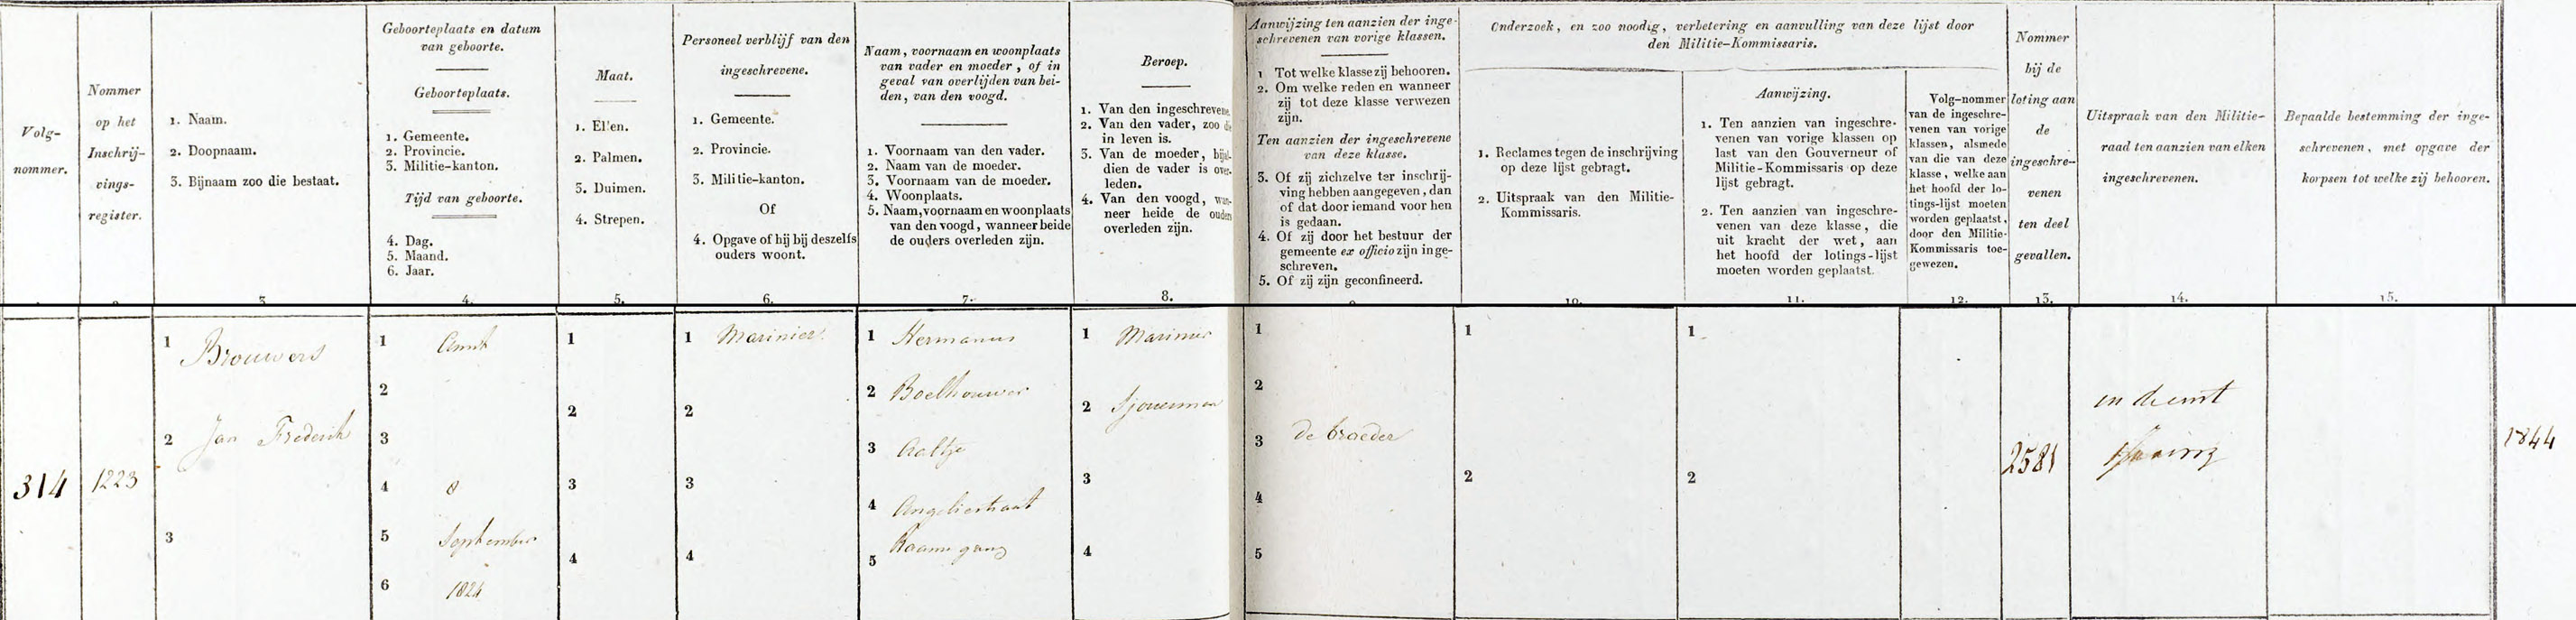 Volg-
nommer.
Nommer
op het
Inschrij-
vings-
register.
1. Naam.
2. Doopnaam.
3. Bijnaam zoo die bestaat.
3.
Geboorteplaats en datum
van geboorte.
Geboorteplaats.
1. Gemeente.
2. Provincie.
3. Militie-kanton.
Tijd van geboorte.
4. Dag.
5. Maand.
6. Jaar.
4.
Maat.
1. Ellen.
2. Palmen.
3. Duimen.
4. Strepen.
5.
Personeel verblijf van den
ingeschrevene.
1. Gemeente.
2. Provincie.
3. Militie-kanton.
Of
4. Opgave of hij bij deszelfs
ouders woont.
6.
Naam, voornaam en woonplaats
van vader en moeder, of in
geval van overlijden van bei-
den, van den voogd.
1. Voornaam van den vader.
2. Naam van de moeder.
3. Voornaam van de moeder.
4. Woonplaats.
5. Naam, voornaam en woonplaats
van den voogd, wanneer beide
de ouders overleden zijn.
7.
Beroep.
1. Van den ingeschrevene.
2. Van den vader, zoo die
in leven is.
3. Van de moeder, bijal-
dien de vader is over-
leden.
4. Van den voogd, wan-
neer beide de ouders
overleden zijn.
8.
Aanwijzing ten aanzien der inge-
schrevenen van vorige klassen.
1 Tot welke klasse zij behooren.
2. Om welke reden en wanneer
zij tot deze klasse verwezen
zijn.
Ten aanzien der ingeschrevene
van deze klasse.
3. Of zij zichzelve ter inschrij-
ving hebben aangegeven, dan
of dat door iemand voor hen
is gedaan.
4. Of zij door het bestuur der
gemeente ex officio zijn inge-
schreven.
5. Of zij zijn geconfineerd.
9.
Onderzoek, en zoo noodig, verbetering en aanvulling van deze lijst door
den Militie-Kommissaris.
1. Reclames tegen de inschrijving
op deze lijst gebragt.
2. Uitspraak van den Militie-
Kommissaris.
10.
Aanwijzing.
1. Ten aanzien van ingeschre-
venen van vorige klassen op
last van den Gouverneur of
Militie-Kommissaris op deze
lijst gebragt.
2. Ten aanzien van ingeschre-
venen van deze klasse, die
uit kracht der wet, aan
het hoofd der lotings-lijst
moeten worden geplaatst.
11.
Volg-nommer
van de ingeschre-
venen van vorige
klassen, alsmede
van die van deze
klasse, welke aan
het hoofd der lo-
tings-lijst moeten
worden geplaatst,
door den Militie-
Kommissaris toe-
gewezen.
12.
Nommer
bij de
loting aan
de
ingeschre-
venen
ten deel
gevallen.
13.
Uitspraak van den Militie-
raad ten aanzien van elken
ingeschrevenen.
14.
Bepaalde bestemming der inge-
schrevenen, met opgave der
korpsen tot welke zij behooren.
15.
314
1223
1 Brouwers
2 Jan Frederik
3
1 Amst
2
3
4 8
5 September
6 1824
1
2
3
4
1 Marinier
2
3
4
1 Hermanus
2 Boelhouwer
3 Aaltje
4 Angelierstraat
Raamgang
5
1 Marinier
2 Sjouwerman
3
4
1
2
3 de broeder
4
5
1
2
1
2
2581
in dienst
1844